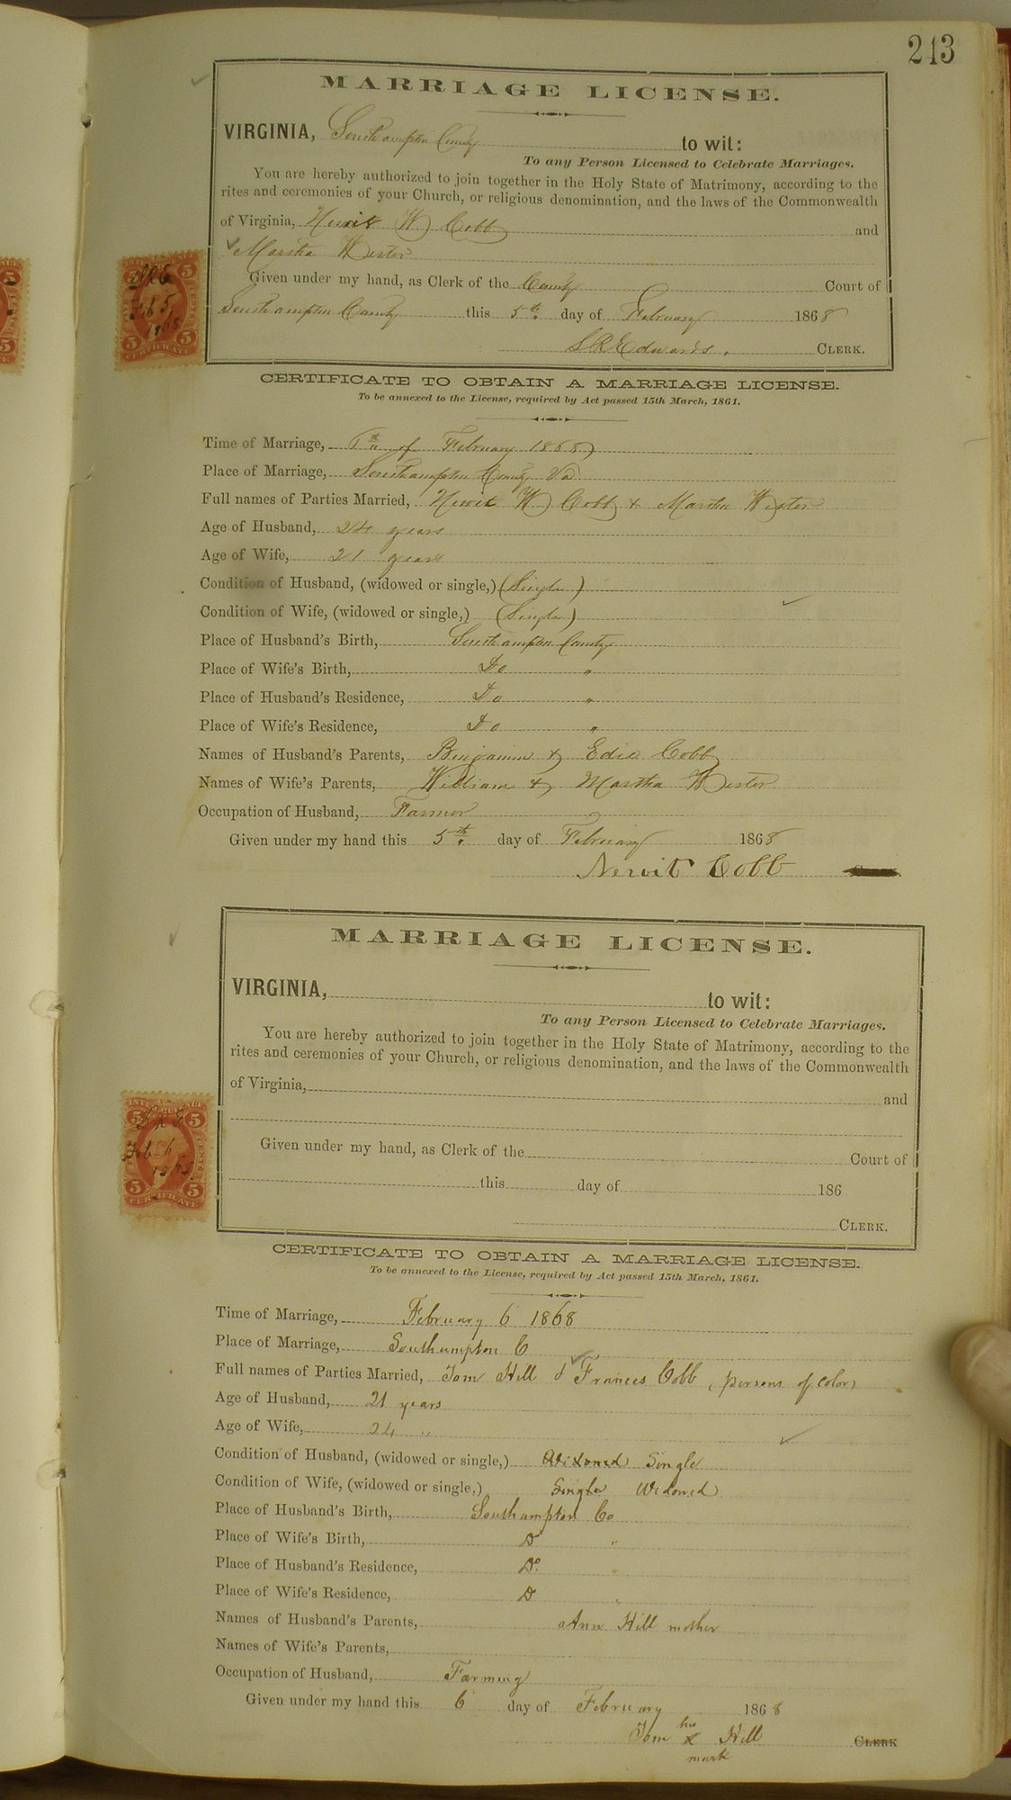 213
MARRIAGE LICENSE.
VIRGINIA, Southampton County to wit:
To any Person Licensed to Celebrate Marriages.
You are hereby authorized to join together in the Holy State of Matrimony, according to the
rites and ceremonies of your Church, or religious denomination, and the laws of the Commonwealth
of Virginia, W Cobb and
Martha Wester
Given under my hand, as Clerk of the County Court of
Southampton County this 5th day of February 1868
Edwards. CLERK.
5 5
Feb 5
1868
5 5
CERTIFICATE
CERTIFICATE TO OBTAIN A MARRIAGE LICENSE.
To be annexed to the License, required by Act passed 15th March, 1861.
Time of Marriage, of February 1868
Place of Marriage, Southampton County Va
Full names of Parties Married, W Cobb & Martha Wester
Age of Husband, 24 years
Age of Wife, 21 years
Condition of Husband, (widowed or single,) (Single)
Condition of Wife, (widowed or single,) (Single)
Place of Husband's Birth, Southampton County
Place of Wife's Birth, Do "
Place of Husband's Residence, Do "
Place of Wife's Residence, Do "
Names of Husband's Parents, Benjamin & Edie Cobb
Names of Wife's Parents, William & Martha Wester
Occupation of Husband, Farmer
Given under my hand this 5th day of February 1868
Cobb
MARRIAGE LICENSE.
VIRGINIA, to wit:
To any Person Licensed to Celebrate Marriages.
You are hereby authorized to join together in the Holy State of Matrimony, according to the
rites and ceremonies of your Church, or religious denomination, and the laws of the Commonwealth
of Virginia, and
Given under my hand, as Clerk of the Court of
this day of 186
CLERK.
5 5
Feb 6
1868
5 5
CERTIFICATE
CERTIFICATE TO OBTAIN A MARRIAGE LICENSE.
To be annexed to the License, required by Act passed 15th March, 1861.
Time of Marriage, February 6 1868
Place of Marriage, Southampton C
Full names of Parties Married, Tom Hill & Frances Cobb (persons of color)
Age of Husband, 21 years
Age of Wife, 24 "
Condition of Husband, (widowed or single,) Widowed Single
Condition of Wife, (widowed or single,) Single Widowed
Place of Husband's Birth, Southampton Co
Place of Wife's Birth, Do "
Place of Husband's Residence, Do "
Place of Wife's Residence, Do "
Names of Husband's Parents, Ann Hill mother
Names of Wife's Parents,
Occupation of Husband, Farming
Given under my hand this 6 day of February 1868
Tom his x mark Hill CLERK